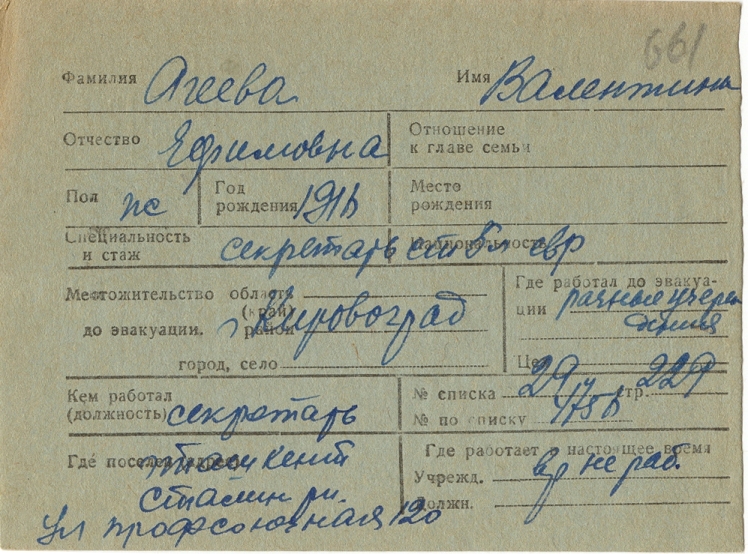 661
Фамилия Агеева Имя Валентина
Отчество Ефимовна Отношение к главе семьи
Пол жс Год рождения 1916 Место рождения
Специальность и стаж секретарь ст 5л Национальность евр
Местожительство до эвакуации. область (край) район г. Кировоград
город, село
Где работал до эвакуации разные учереждения
Цех
Кем работал (должность) секретарь
№ списка 29/IV стр. 229
№ по списку
Где поселен (адрес) Ташкент
Сталин рн.
ул профсоюзная 120
Где работает в настоящее время
Учрежд. вр не раб.
Должн.